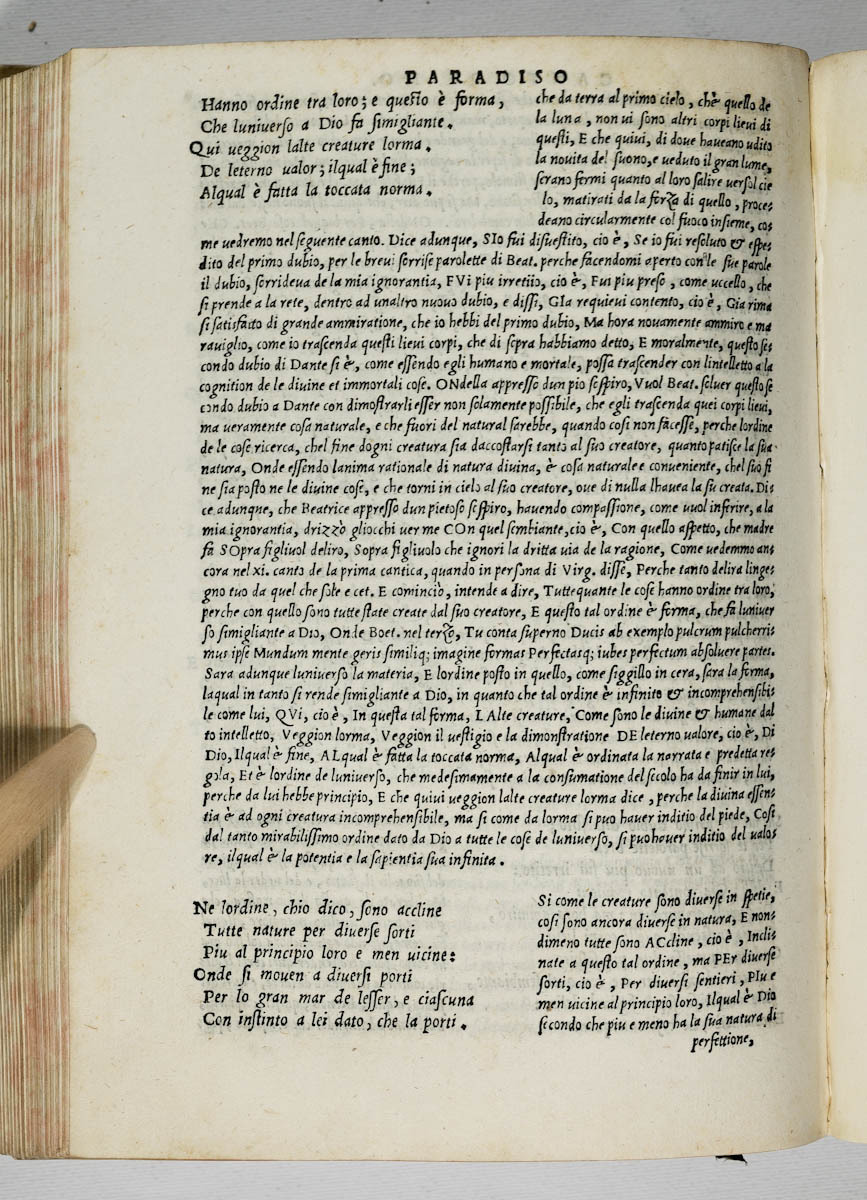 PARADISO
Hanno ordine tra loro; e questo è forma,
Che luniuerso a Dio fa simigliante.
Qui ueggion lalte creature lorma.
De leterno ualor; ilqual è fine;
Alqual è fatta la toccata norma.
che da terra al primo cielo, ch'è quello de
la luna, non ui sono altri corpi lieui di
questi, E che quiui, di doue haueano udito
la nouita del suono, e ueduto il gran lume,
serano fermi quanto al loro salire uersol cie
lo, matirati da la forza di quello, proce-
deano circularmente col fuoco insieme, co-
me uedremo nel seguente canto. Dice adunque, SIo fui disuestito, cio è, Se io fui resoluto & espe-
dito del primo dubio, per le breui sorrise parolette di Beat. perche facendomi aperto con le sue parole
il dubio, sorrideua de la mia ignorantia, FVi piu irretito, cio è, Fui piu preso, come uccello, che
si prende a la rete, dentro ad unaltro nuouo dubio, e dissi, GIa requieui contento, cio è, Gia rima
si satisfatto di grande ammiratione, che io hebbi del primo dubio, Ma hora nouamente ammiro e ma
rauiglio, come io trascenda questi lieui corpi, che di sopra habbiamo detto, E moralmente, questo se-
condo dubio di Dante si è, come essendo egli humano e mortale, possa trascender con lintelletto a la
cognition de le diuine et immortali cose. ONdella appresso dun pio sospiro, Vuol Beat. soluer questo se
condo dubio a Dante con dimostrarli esser non solamente possibile, che egli trascenda quei corpi lieui,
ma ueramente cosa naturale, e che fuori del natural sarebbe, quando cosi non facesse, perche lordine
de le cose ricerca, chel fine dogni creatura sia daccostarsi tanto al suo creatore, quanto patisce la sua
natura, Onde essendo lanima rationale di natura diuina, è cosa naturale e conueniente, chel suo fi
ne sia posto ne le diuine cose, e che torni in cielo al suo creatore, oue di nulla lhauea la su creata. Di-
ce adunque, che Beatrice appresso dun pietoso sospiro, hauendo compassione, come uuol inferire, a la
mia ignorantia, drizzò gliocchi uer me COn quel sembiante, cio è, Con quello aspetto, che madre
fa SOpra figliuol deliro, Sopra figliuolo che ignori la dritta uia de la ragione, Come uedemmo an-
cora nel xi. canto de la prima cantica, quando in persona di Virg. disse, Perche tanto delira linge-
gno tuo da quel che sole e cet. E cominciò, intende a dire, Tutte quante le cose hanno ordine tra loro,
perche con quello sono tutte state create dal suo creatore, E questo tal ordine è forma, che fa luniuer
so simigliante a Dio, Onde Boet. nel terzo, Tu conta superno Ducis ab exemplo pulcrum pulcherri-
mus ipse Mundum mente geris similiq; imagine formas Perfectasq; iubes perfectum absoluere partes.
Sara adunque luniuerso la materia, E lordine posto in quello, come siggillo in cera, sara la forma,
laqual in tanto si rende simigliante a Dio, in quanto che tal ordine è infinito & incomprehensibi-
le come lui, QVi, cio è, In questa tal forma, LAlte creature, Come sono le diuine & humane dal
to intelletto, Veggion lorma, Veggion il uestigio e la dimonstratione DE leterno ualore, cio è, Di
Dio, Ilqual è fine, ALqual è fatta la toccata norma, Alqual è ordinata la narrata e predetta re-
gola, Et è lordine de luniuerso, che medesimamente a la consumatione del secolo ha da finir in lui,
perche da lui hebbe principio, E che quiui ueggion lalte creature lorma dice, perche la diuina essen-
tia è ad ogni creatura incomprehensibile, ma si come da lorma si puo hauer inditio del piede, Cosi
dal tanto mirabilissimo ordine dato da Dio a tutte le cose de luniuerso, si puo hauer inditio del ualo-
re, ilqual è la potentia e la sapientia sua infinita.
Ne lordine, chio dico, sono accline
Tutte nature per diuerse sorti
Piu al principio loro e men uicine:
Onde si mouen a diuersi porti
Per lo gran mar de lesser, e ciascuna
Con instinto a lei dato, che la porti.
Si come le creature sono diuerse in spetie,
cosi sono ancora diuerse in natura, E non-
dimeno tutte sono ACcline, cio è, Incli-
nate a questo tal ordine, ma PEr diuerse
sorti, cio è, Per diuersi sentieri, PIu e
men uicine al principio loro, Ilqual è Dio
secondo che piu e meno ha la sua natura di
perfettione,